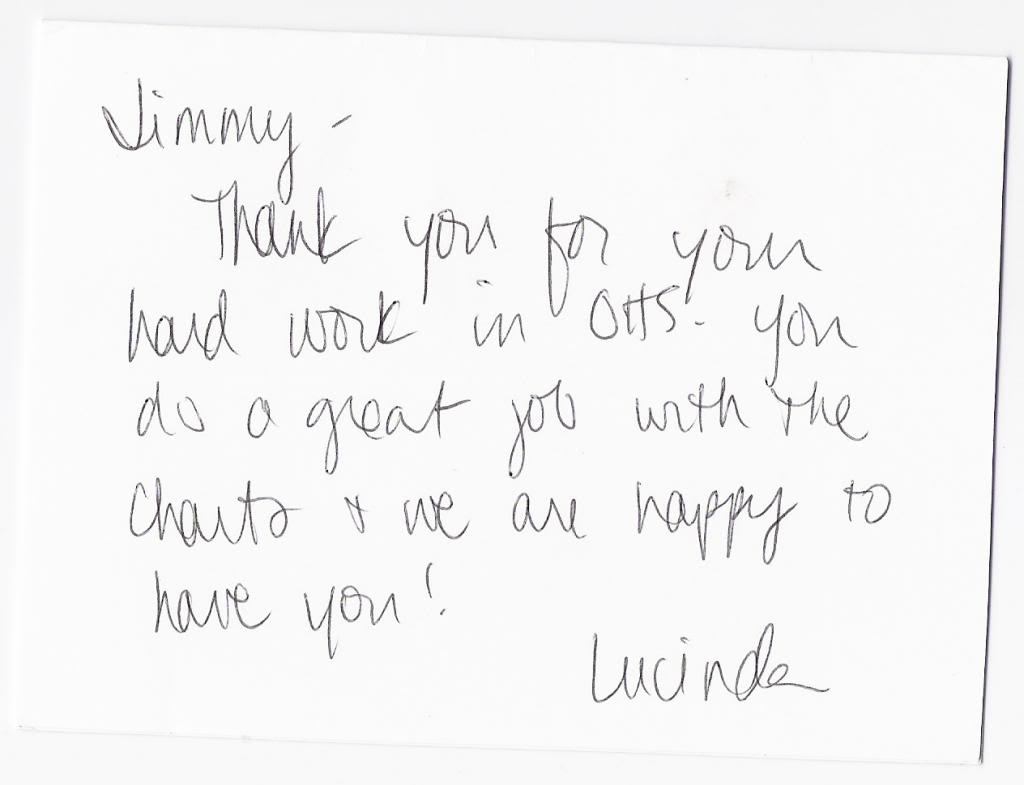 Jimmy -
Thank you for your
hard work in OHS. you
do a great job with the
charts & we are happy to
have you!
Lucinda